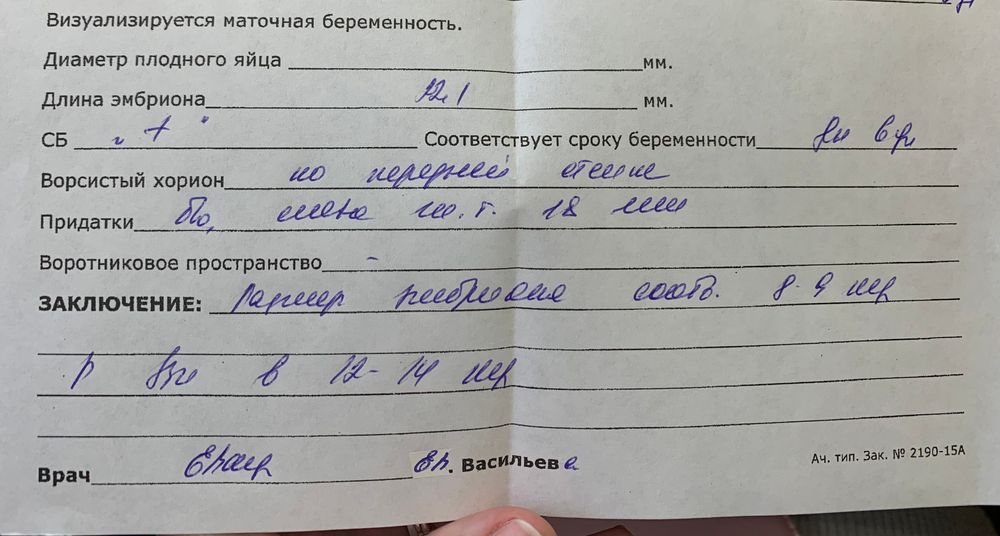 Визуализируется маточная беременность.
Диаметр плодного яйца мм.
Длина эмбриона мм.
СБ "+" Соответствует сроку беременности
Ворсистый хорион по передней стенке
Придатки бо, ж.т. 18 мм
Воротниковое пространство -
ЗАКЛЮЧЕНИЕ: Размер эмбриона соотв. 8-9 нед
Р узи в 12-14 нед
Врач Васильева
Ач. тип. Зак. № 2190-15А